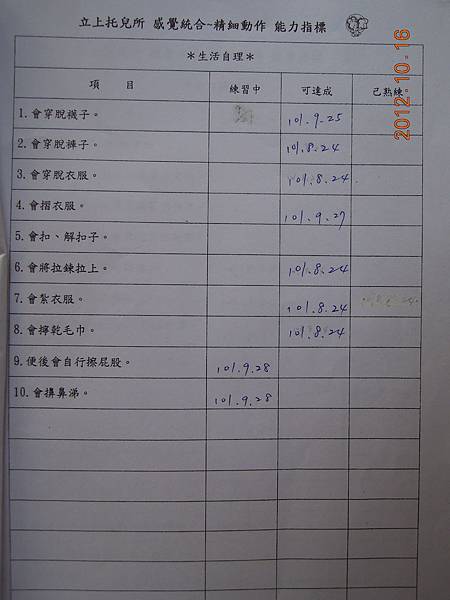 立上托兒所 感覺統合~精細動作 能力指標
＊生活自理＊
項 目 練習中 可達成 已熟練
1.會穿脫襪子。 101.9.25
2.會穿脫褲子。 101.8.24
3.會穿脫衣服。 101.8.24
4.會摺衣服。 101.9.27
5.會扣、解扣子。
6.會將拉鍊拉上。 101.8.24
7.會紮衣服。 101.8.24
8.會擰乾毛巾。 101.8.24
9.便後會自行擦屁股。 101.9.28
10.會擤鼻涕。 101.9.28
2012.10.16